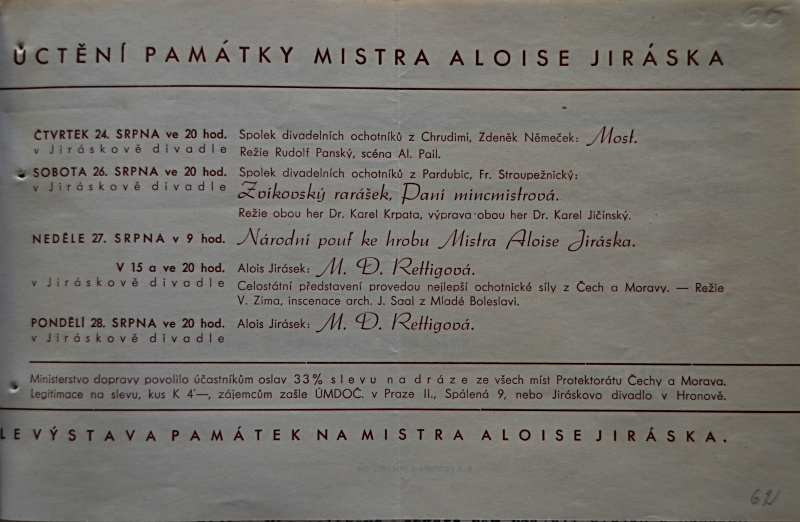 ÚCTĚNÍ PAMÁTKY MISTRA ALOISE JIRÁSKA
ČTVRTEK 24. SRPNA ve 20 hod. Spolek divadelních ochotníků z Chrudimi, Zdeněk Němeček: Most.
v Jiráskově divadle Režie Rudolf Panský, scéna Al. Pail.
SOBOTA 26. SRPNA ve 20 hod. Spolek divadelních ochotníků z Pardubic, Fr. Stroupežnický:
v Jiráskově divadle Zvíkovský rarášek, Paní mincmistrová.
Režie obou her Dr. Karel Krpata, výprava obou her Dr. Karel Jičínský.
NEDĚLE 27. SRPNA v 9 hod. Národní pouť ke hrobu Mistra Aloise Jiráska.
V 15 a ve 20 hod. Alois Jirásek: M. D. Rettigová.
v Jiráskově divadle Celostátní představení provedou nejlepší ochotnické síly z Čech a Moravy. — Režie
V. Zima, inscenace arch. J. Saal z Mladé Boleslavi.
PONDĚLÍ 28. SRPNA ve 20 hod. Alois Jirásek: M. D. Rettigová.
v Jiráskově divadle
Ministerstvo dopravy povolilo účastníkům oslav 33% slevu na dráze ze všech míst Protektorátu Čechy a Morava.
Legitimace na slevu, kus K 4·—, zájemcům zašle ÚMDOČ. v Praze II., Spálená 9, nebo Jiráskovo divadlo v Hronově.
LE VÝSTAVA PAMÁTEK NA MISTRA ALOISE JIRÁSKA.
62